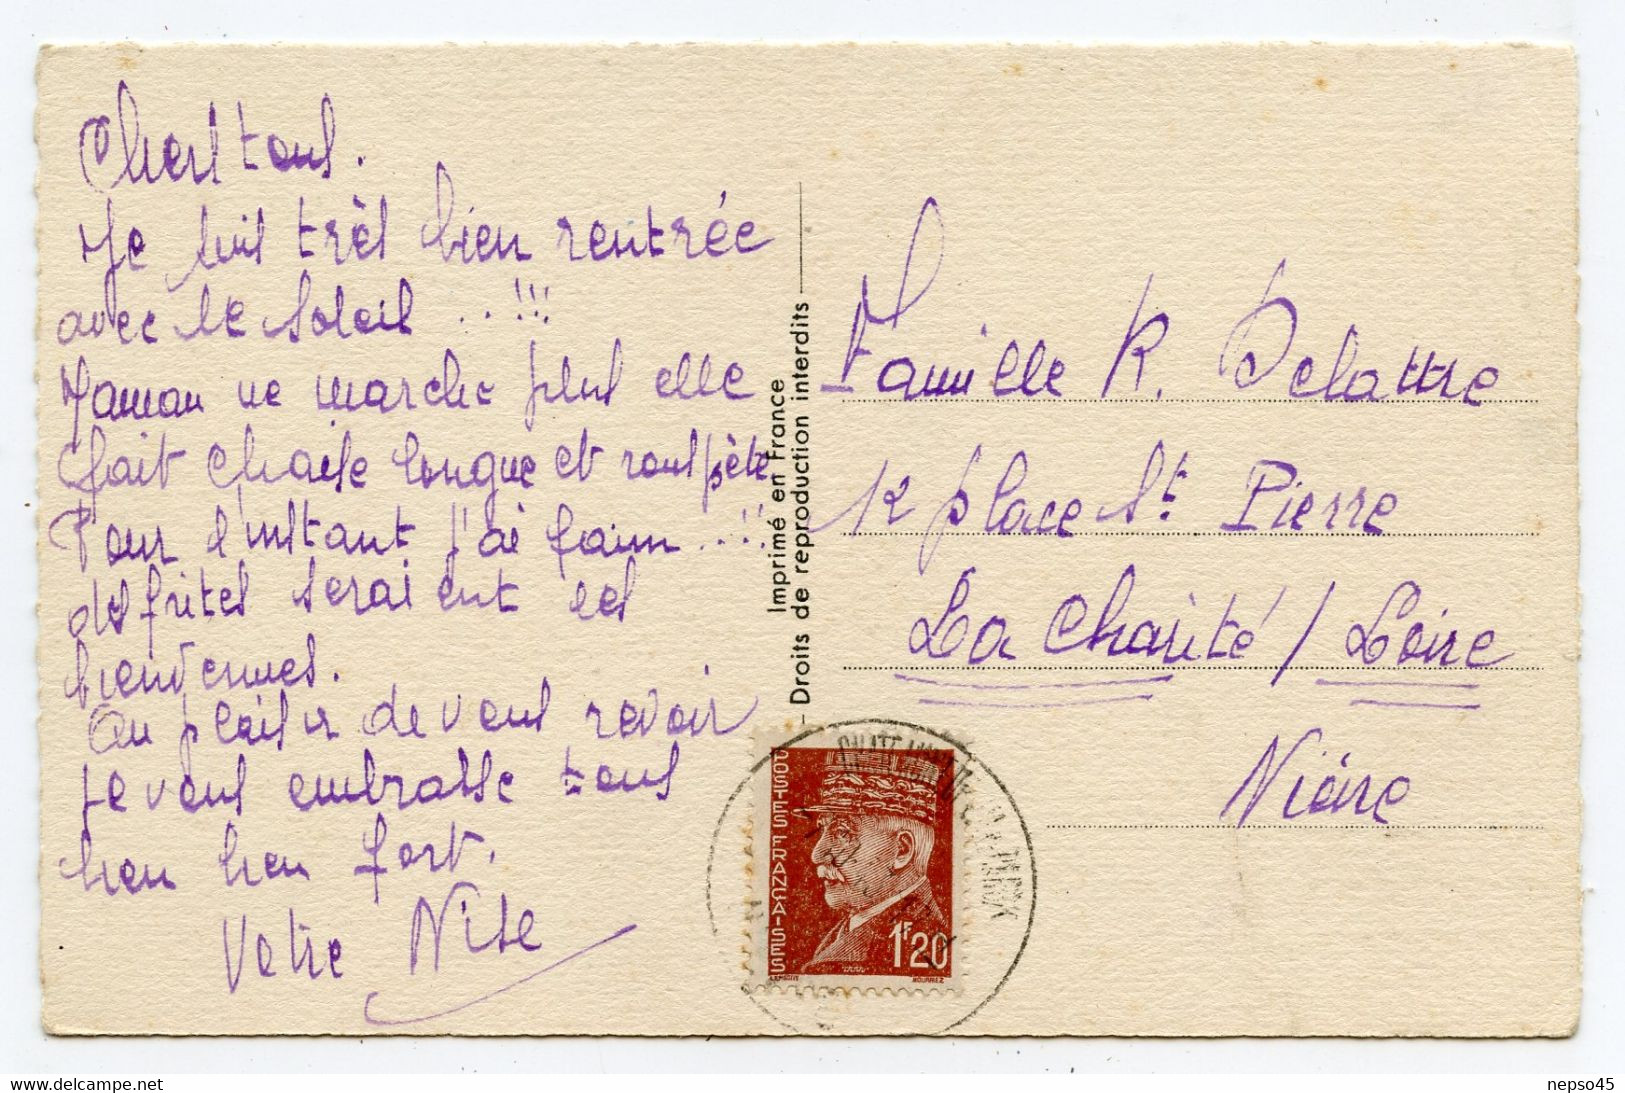 Chers tous.
Je suis très bien rentrée
avec le soleil ..!!!
Maman ne marche plus elle
fait chaise longue et rouspète
Pour l'instant j'ai faim ..!!
des frites seraient les
bienvenues.
Au plaisir de vous revoir
je vous embrasse tous
bien bien fort.
Votre Nise
Imprimé en France
Droits de reproduction interdits
Famille R. Delattre
12 place St. Pierre
La Charité / Loire
Nièvre
POSTES FRANÇAISES
1F20
delcampe.net
nepso45